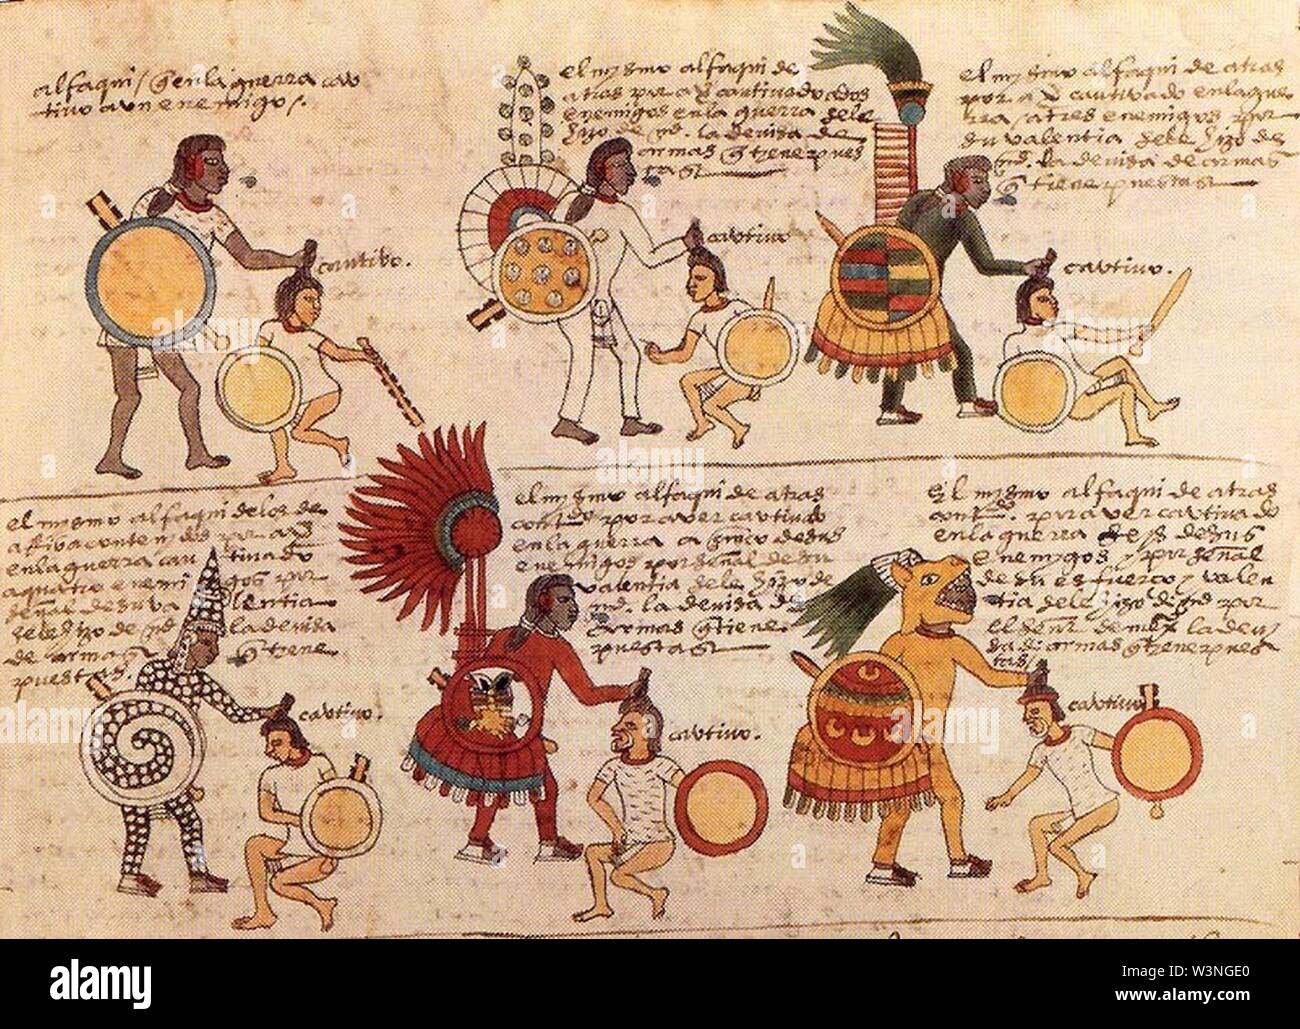 alfaqui / q̃ enla guerra cau
tivo a un enemigo /.
cautibo.
el mysmo alfaqui de
atras por a
cautivado a dos
enemigos enla guerra
hizo de md. la devisa de
armas q̃ tiene pues
tas
cautivo
el mysmo alfaqui de atras
por a
cautivado enla gue
rra / a tres enemigos por
su valentia sele hizo de
md. la devisa de armas
q̃ tiene puestas
cautivo.
el mysmo alfaqui delos de
arriba contenydos por
enla guerra cautivado
a quatro enemigos por
señal de su valentia
sele hizo de md la devisa
de armas q̃ tiene
puestas.
cautivo.
el mysmo alfaqui de atras
por aver cautivado
enla guerra a cinco de sus
enemigos por señal de su
valentia sele hizo de
md la devisa de
armas q̃ tiene
puestas
cautivo.
el mysmo alfaqui de atras
por aver cautivado
enla guerra seys de sus
enemygos y por señal
de su esfuerço y valen
tia sele hizo de md por
el señor de mexco la devi
sa de armas q̃ tiene pues
tas /
cautivo
a
alamy
alamy stock photo
W3NGE0
www.alamy.com